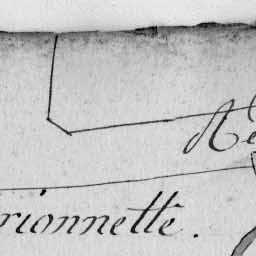 Re
rionnette.